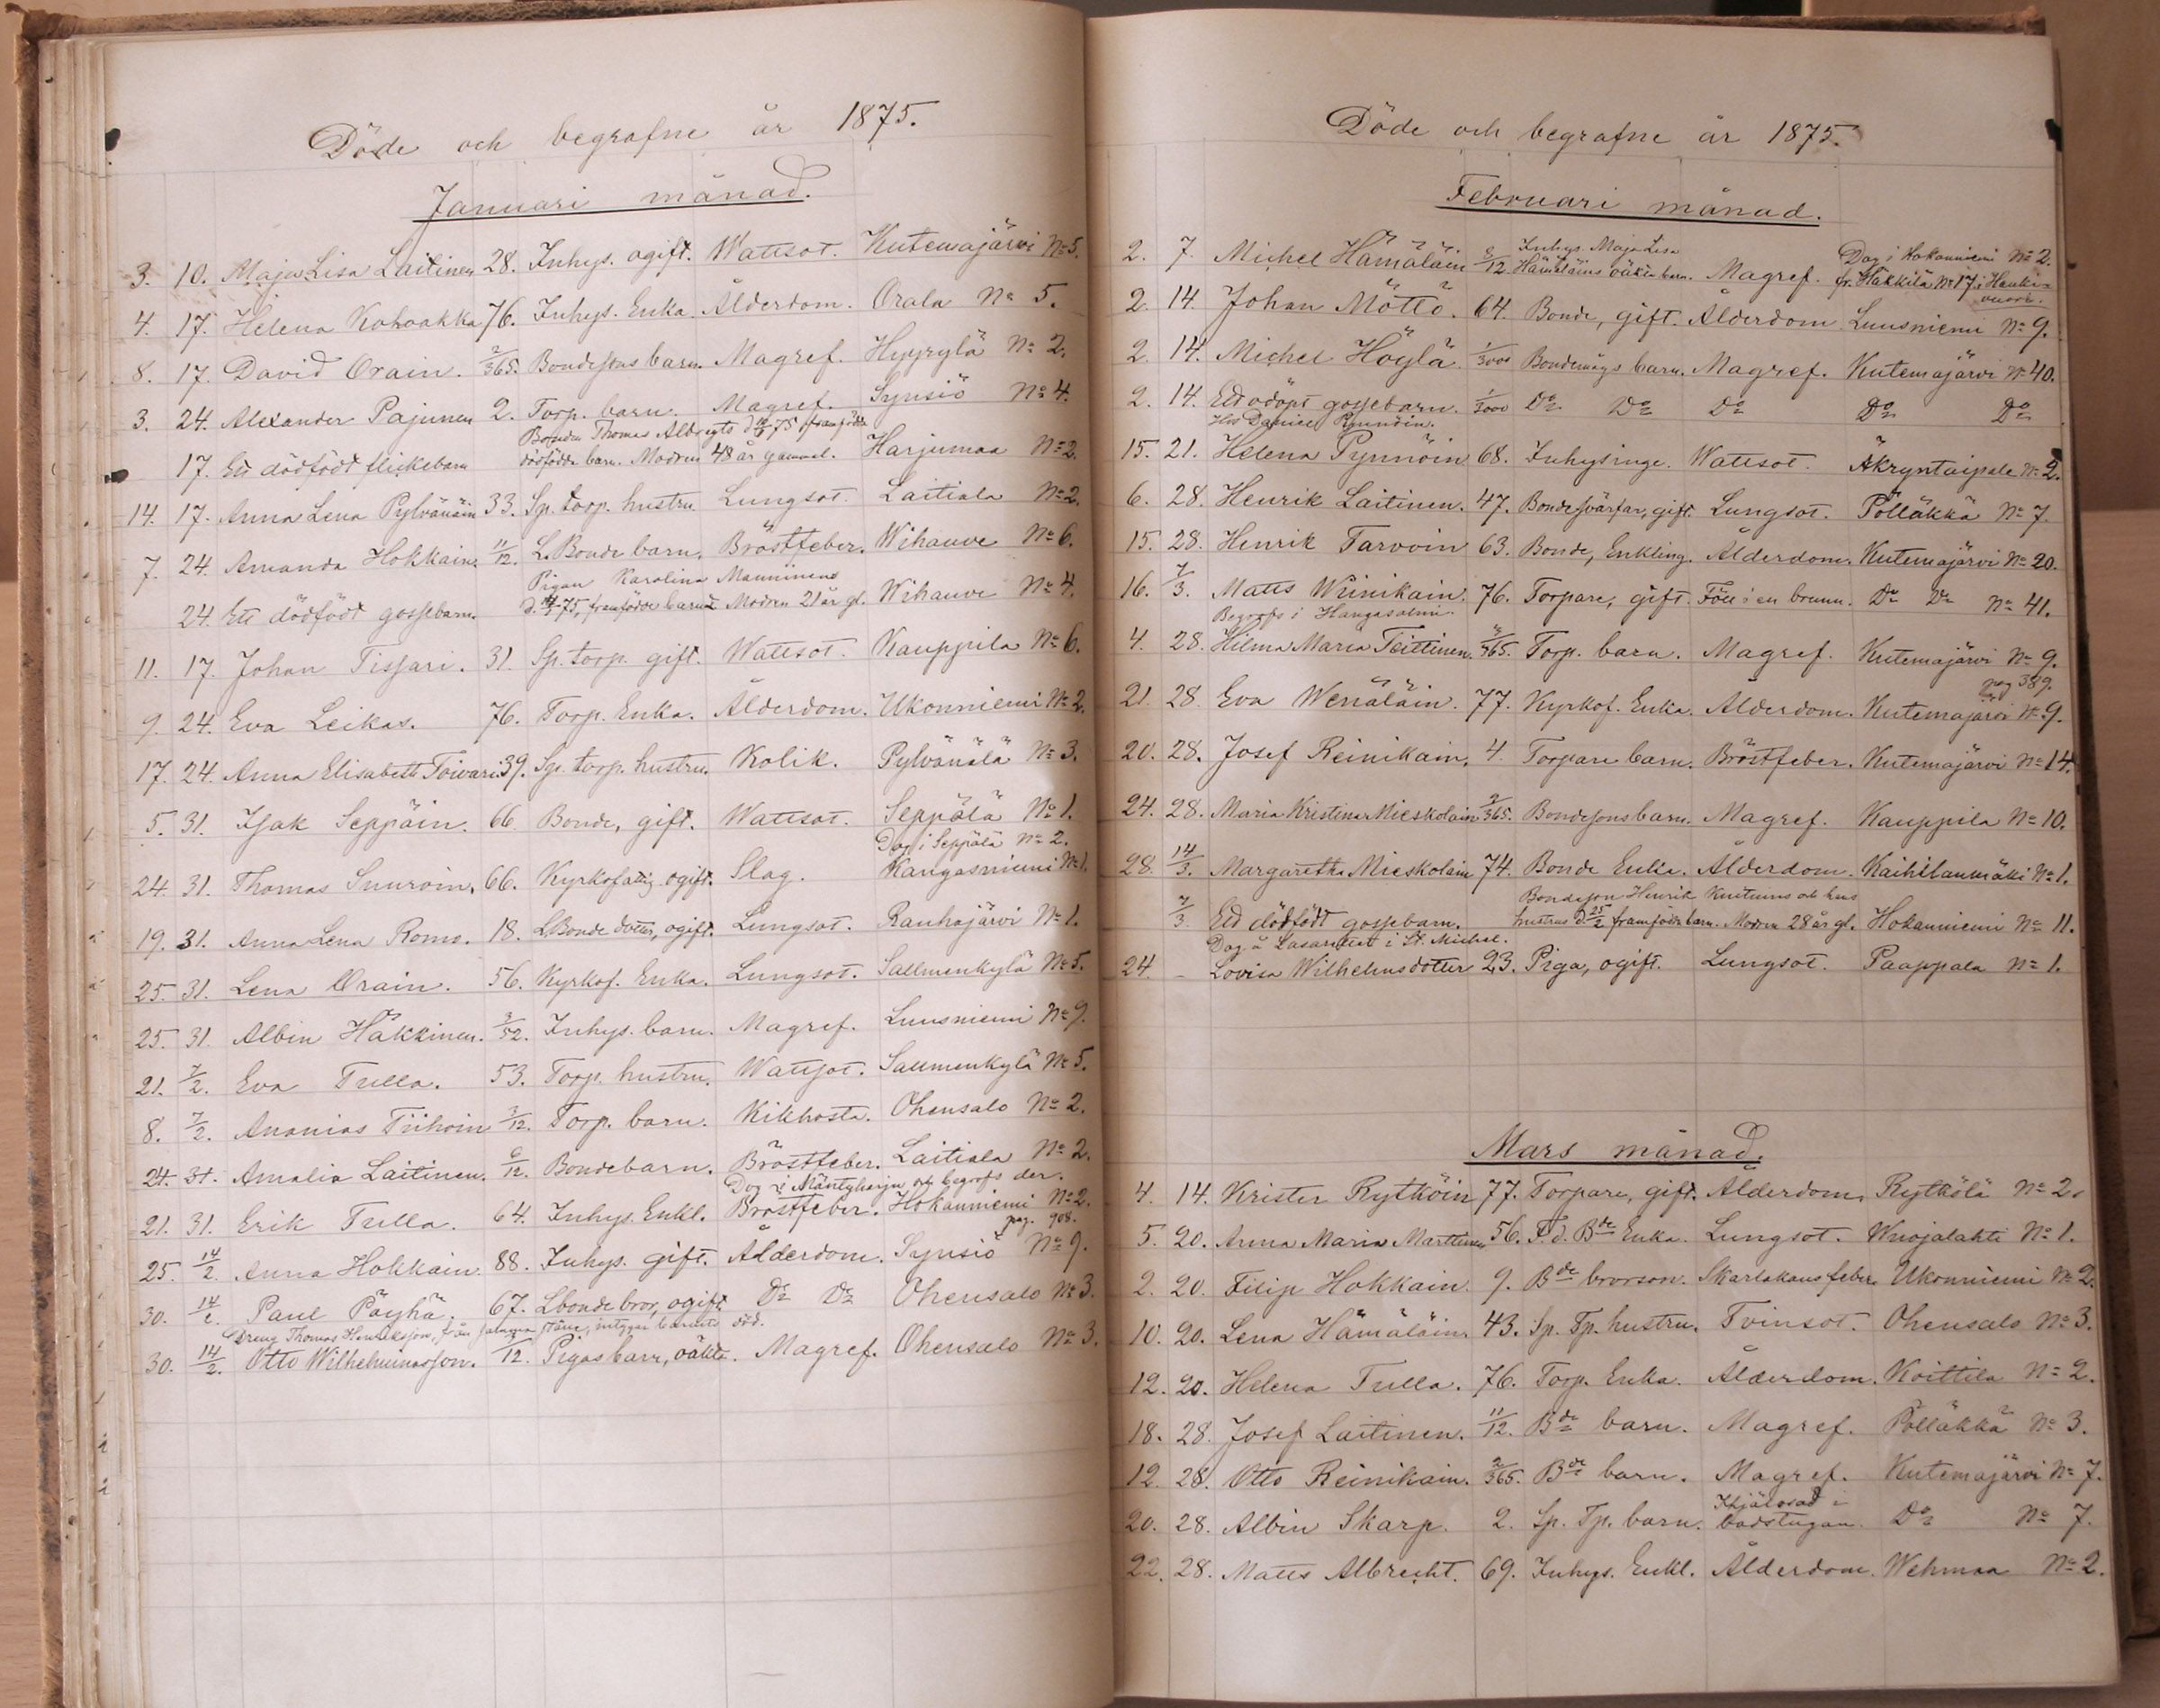 Döde och begrafne år 1875.
Januari månad.
3. 10. Maja Lisa Laitinen 28. Inhys. ogift. Wattsot. Kutemajärvi № 5.
4. 17. Helena Kohvakka 76. Inhys. Enka. Ålderdom. Orala № 5.
8. 17. David Orain. 2/365. Bondesons barn. Magref. Hyyrylä № 2.
3. 24. Alexander Pajunen 2. Torp. barn. Magref. Synsiö № 4.
Bonden Thomas 75 framfödda
17. Ett dödfödt flickebarn dödfödda barn. Modren 48 år gammal. Harjumaa № 2.
14. 17. Anna Lena Pylvänäin 33. Sp. torp. hustru Lungsot. Laitiala № 2.
7. 24. Amanda Hokkain. 11/12. L. Bonde barn. Bröstfeber. Wihauve № 6.
Pigan Karolina Manninens
24. Ett dödfödt gossebarn. 75 framfödde barn. Modren 21 år gl. Wihauve № 4.
11. 17. Johan Tissari. 31. Sp. torp. gift. Wattsot. Kauppila № 6.
9. 24. Eva Leikas. 76. Torp. Enka. Ålderdom. Ukonniemi № 2.
17. 24. Anna Elisabeth Toivari 39. Sp. torp. hustru. Kolik. Pylvänälä № 3.
5. 31. Isak Seppäin. 66. Bonde, gift. Wattsot. Seppälä № 1.
Dog i Seppälä № 2.
24. 31. Thomas Suuroin. 66. Kyrkofattig ogift. Slag. Kangasniemi № 1.
19. 31. Anna Lena Romo. 18. LBonde dotter, ogift. Lungsot. Rauhajärvi № 1.
25. 31. Lena Orain. 56. Kyrkof. Enka. Lungsot. Salmenkylä № 5.
25. 31. Albin Häkkinen. 3/52. Inhys. barn. Magref. Luusniemi № 9.
21. 7/2. Eva Tulla. 53. Torp. hustru. Wattsot. Salmenkylä № 5.
8. 7/2. Ananias Tiihoin 3/12. Torp. barn. Kikhosta. Ohensalo № 2.
24. 31. Amalia Laitinen. 6/12. Bondebarn. Bröstfeber. Laitiala № 2.
Dog i Mäntyharju och begrofs der.
21. 31. Erik Tulla. 64. Inhys. Enkl. Bröstfeber. Hokanniemi № 2.
pag. 908.
25. 14/2. Anna Hokkain. 88. Inhys. gift. Ålderdom. Synsiö № 9.
30. 14/2. Paul Päyhä. 67. Lbonde bror, ogift. Do Do Ohensalo № 3.
Dreng Thomas Henriksson, från samma ställe, intygar barnets död.
30. 14/2. Otto Wilhelminasson. /12. Pigas barn, oäkta. Magref. Ohensalo № 3.
Döde och begrafne år 1875.
Februari månad.
Inhys. Maja Lisa Dog i Hokanniemi № 2.
2. 7. Michel Hämäläin 2/12. Hämäläins oäkta barn. Magref. fr. Häkkilä № 17 i Hauki-
vuori.
2. 14. Johan Möttö. 64. Bonde, gift. Ålderdom. Luusniemi № 9.
2. 14. Michel Höylä 1/3000 Bondemågs barn. Magref. Kutemajärvi № 40.
2. 14. Ett odöpt gossebarn. 1/3000 Do Do Do Do Do
Hos
15. 21. Helena Pynnöin 68. Inhysinge. Wattsot. Äkryntaipale № 2.
6. 28. Henrik Laitinen. 47. Bondesvärfar, gift. Lungsot. Pölläkkä № 7.
15. 28. Henrik Tarvoin 63. Bonde, Enkling. Ålderdom. Kutemajärvi № 20.
16. 7/3. Matts Wiinikain. 76. Torpare, gift. Föll i en brunn. Do Do № 41.
Begrofs i Hangasalmi.
4. 28. Hilma Maria Teittinen. 3/365. Torp. barn. Magref. Kutemajärvi № 9.
pag 389.
21. 28. Eva Wenäläin. 77. Kyrkof. Enka. Ålderdom. Kutemajärvi № 9.
20. 28. Josef Reinikain. 4. Torpare barn. Bröstfeber. Kutemajärvi № 14.
24. 28. Maria Kristina Mieskolain 2/365. Bondesonsbarn. Magref. Kauppila № 10.
28. 14/3. Margaretha Mieskolain 74. Bonde Enka. Ålderdom. Kaihilanmäki № 1.
Bondeson Henrik Kuitunens och hus
7/3 Ett dödfödt gossebarn. hustrus d. 25/2 framfödda barn. Modren 28 år gl. Hokanniemi № 11.
Dog å Lasarettet i St. Michel.
24. – Lovisa Wilhelmsdotter 23. Piga, ogift. Lungsot. Paappala № 1.
Mars månad.
4. 14. Krister Rytköin 77. Torpare, gift. Ålderdom. Rytkölä № 2.
5. 20. Anna Maria Marttinen 56. F.d. Bde Enka. Lungsot. Wuojalahti № 1.
2. 20. Filip Hokkain. 9. Bde brorson. Skarlakansfeber. Ukonniemi № 2.
10. 20. Lena Hämäläin. 43. Sp. Tp. hustru. Tvinsot. Ohensalo № 3.
12. 20. Helena Tulla. 76. Torp. Enka. Ålderdom. Koittila № 2.
18. 28. Josef Laitinen. 11/12. Bde barn. Magref. Pölläkkä № 3.
12. 28. Otto Reinikain. 2/365. Bde barn. Magref. Kutemajärvi № 7.
Ihjälosad i
20. 28. Albin Skarp. 2. Sp. Tp. barn. badstugan. Do № 7.
22. 28. Matts Albrecht. 69. Inhys. Enkl. Ålderdom. Wehmaa № 2.